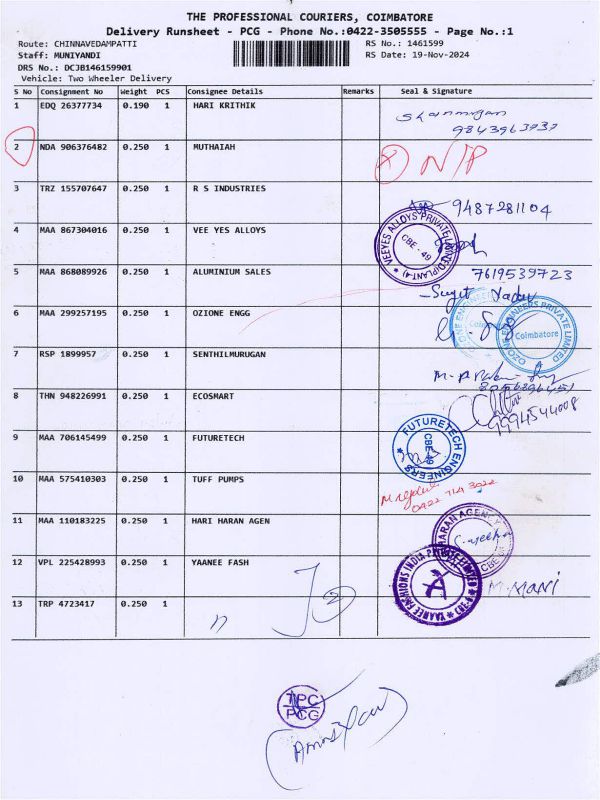 THE PROFESSIONAL COURIERS, COIMBATORE
Delivery Runsheet - PCG - Phone No.:0422-3505555 - Page No.:1
Route: CHINNAVEDAMPATTI RS No.: 1461599
Staff: MUNIYANDI RS Date: 19-Nov-2024
DRS No.: DCJB146159901
Vehicle: Two Wheeler Delivery
S No Consignment No Weight PCS Consignee Details Remarks Seal & Signature
1 EDQ 26377734 0.190 1 HARI KRITHIK
2 NDA 906376482 0.250 1 MUTHAIAH N/P
3 TRZ 155707647 0.250 1 R S INDUSTRIES 9487281104
4 MAA 867304016 0.250 1 VEE YES ALLOYS VEEYES ALLOYS PRIVATE LIMITED(PLANT-4) CBE - 49
5 MAA 868089926 0.250 1 ALUMINIUM SALES 7619539723
Sujit Yadav
6 MAA 299257195 0.250 1 OZIONE ENGG OZONE ENGINEERS PRIVATE LIMITED Coimbatore
7 RSP 1899957 0.250 1 SENTHILMURUGAN
8 THN 948226991 0.250 1 ECOSMART 9994544008
9 MAA 706145499 0.250 1 FUTURETECH FUTURETECH ENGINEERS CBE-49
10 MAA 575410303 0.250 1 TUFF PUMPS
11 MAA 110183225 0.250 1 HARI HARAN AGEN
12 VPL 225428993 0.250 1 YAANEE FASH YAANEE FASHIONS INDIA PRIVATE LIMITED M. MANI
13 TRP 4723417 0.250 1
TPC
PCG